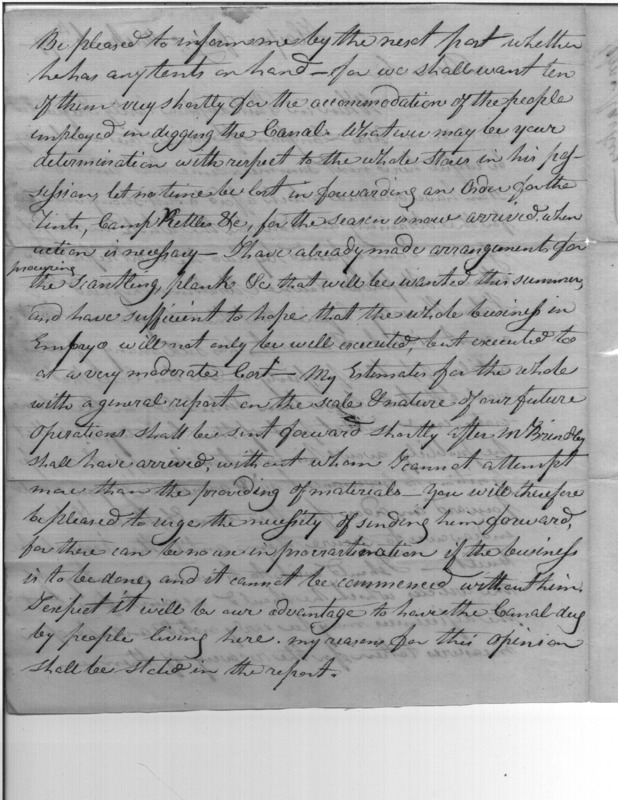 Be pleased to inform me by the next post whether
he has any tents on hand – for we shall want ten
of them very shortly for the accommodation of the people
employed in digging the Canal. Whatever may be your
determination with respect to the whole stores in his pos-
session, let no time be lost in forwarding an Order for the
Tents, Camp Kettles &c, for the season is now arrived when
action is necessary – I have already made arrangements for
procuring
the scantling, plank &c that will be wanted this summer,
and have sufficient to hope that the whole business in
Embryo will not only be well executed, but executed too
at a very moderate Cost – My Estimates for the whole
with a general report on the scale & nature of our future
operations shall be sent forward shortly after Mr Brindley
shall have arrived, without whom I cannot attempt
more than the providing of materials – You will therefore
be pleased to urge the necessity of sending him forward,
for there can be no use in procrastination if the business
is to be done, and it cannot be commenced without him.
I expect it will be our advantage to have the Canal dug
by people living here. my reasons for this opinion
shall be stated in the report.